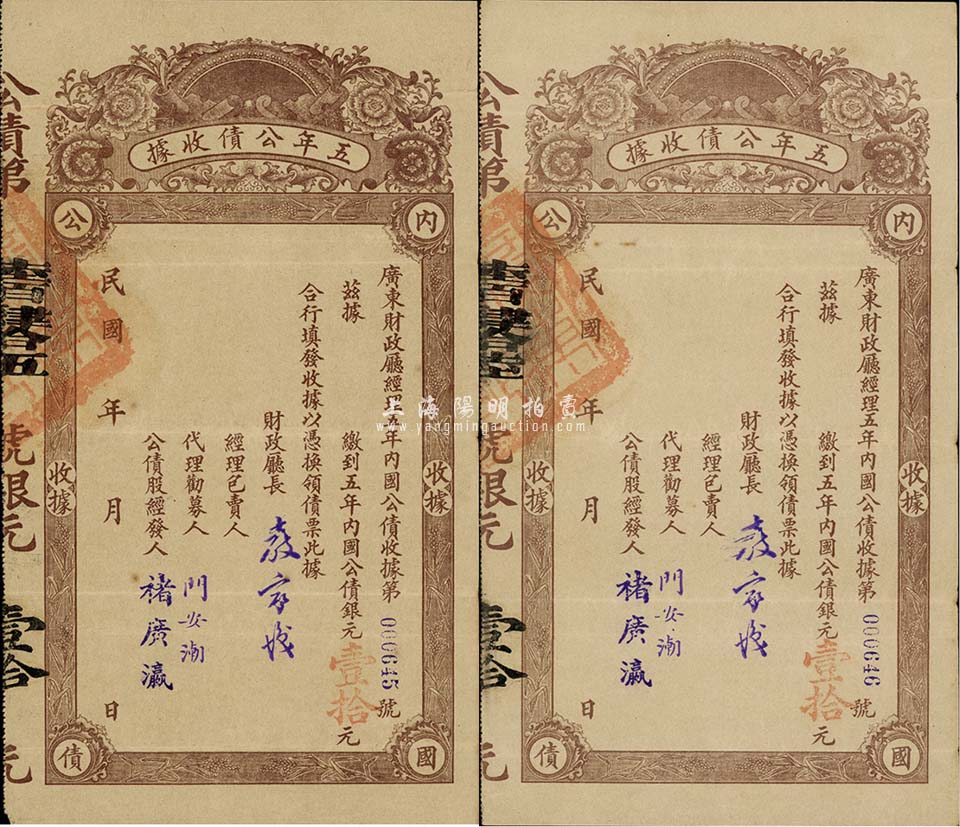 五年公債收據
內
公
國
債
收據
收據
廣東財政廳經理五年內國公債收據第000645號
茲據
繳到五年內國公債銀元壹拾元
合行填發收據以憑換領債票此據
財政廳長
經理包賣人
代理勸募人 門安瀾
公債股經發人 褚廣瀛
民國 年 月 日
公債第
號限元
壹拾
元
五年公債收據
內
公
國
債
收據
收據
廣東財政廳經理五年內國公債收據第000646號
茲據
繳到五年內國公債銀元壹拾元
合行填發收據以憑換領債票此據
財政廳長
經理包賣人
代理勸募人 門安瀾
公債股經發人 褚廣瀛
民國 年 月 日
公債第
號限元
壹拾
元
上海陽明拍賣
www.yangmingauction.com